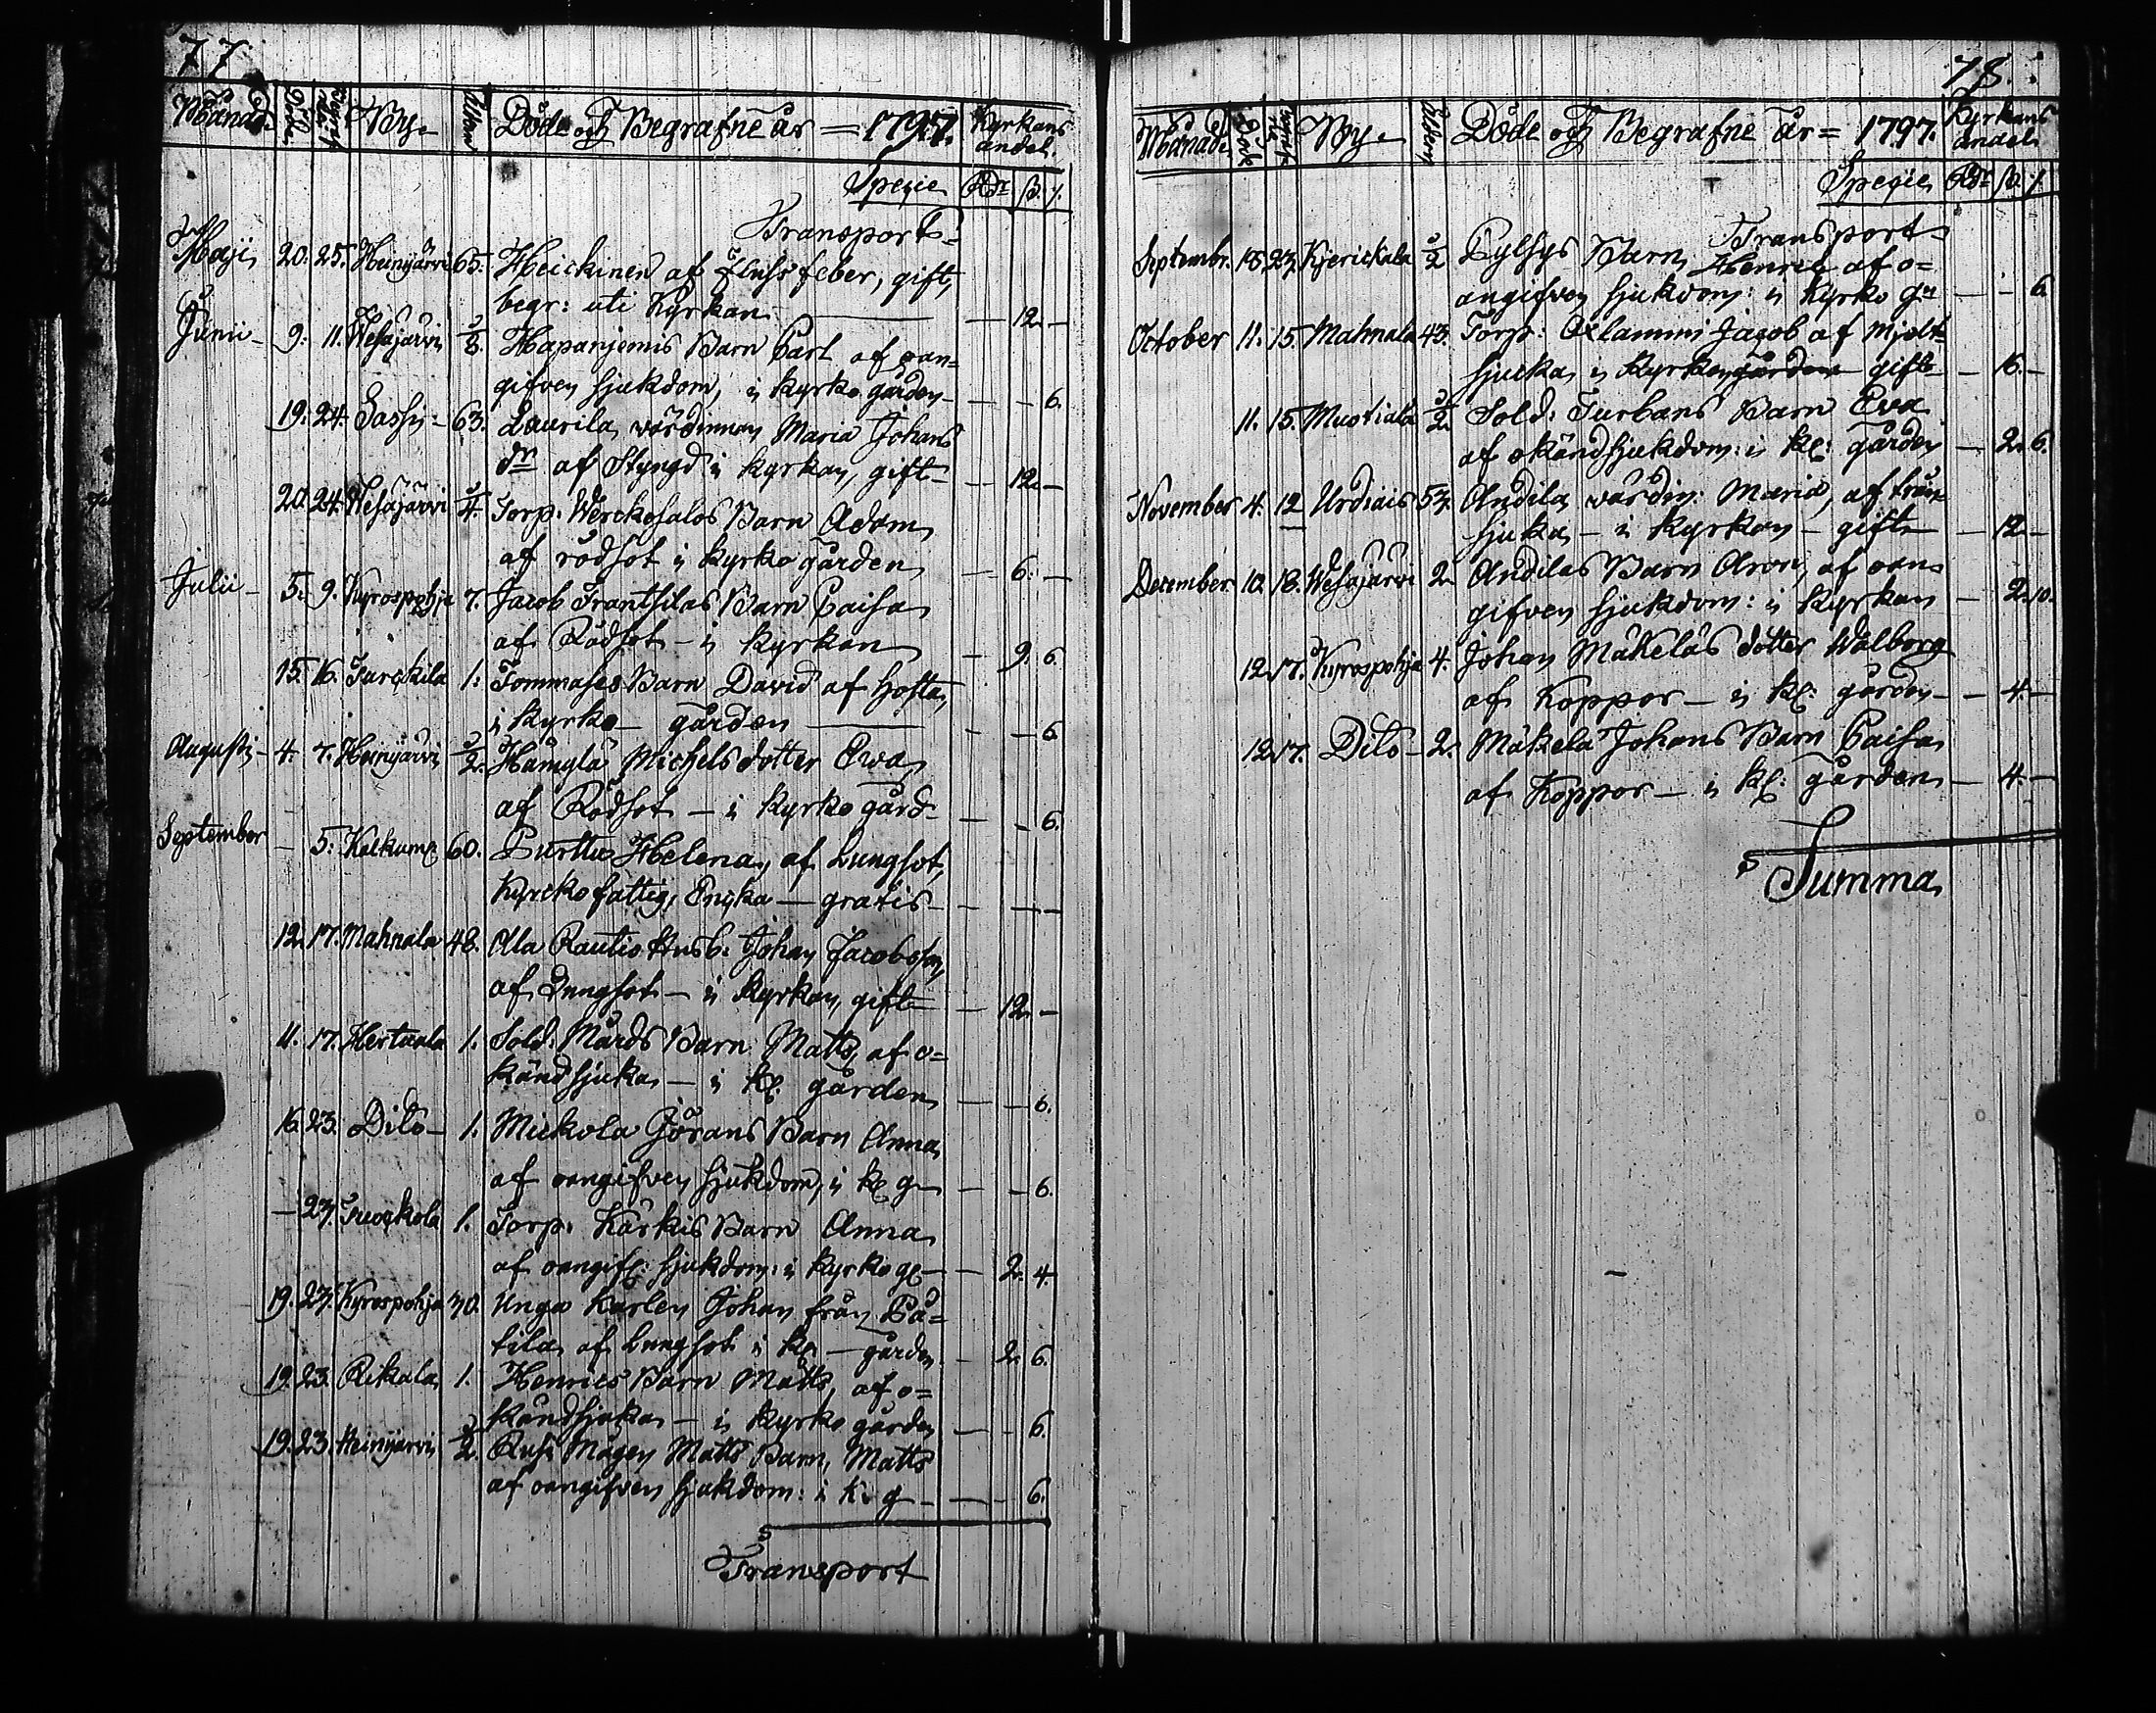 77
Månad Döde Begrafne By Ålder Döde och Begrafne år = 1797. Kyrkans andel.
Specie Rdr ß. /.
Transport
Maji 20. 25. Heinijärvi 65. Heickinen af Flussfeber, gift,
begr: uti Kyrkan — 12 —
Junii 9. 11. Wesajärvi 8. Hapanjemis Barn Carl af oan-
gifven sjukdom, i kyrko gården — 6.
19. 24. Sassi 63. Laurila wärdinnan Maria Johans
dr af Styng i kyrkan, gift — 12 —
20. 24. Wesajärvi 4. Torp. Werckosalos Barn Adam
af rödsot i kyrko gården — 6. —
Julii 5. 9. Kyrospohja 7. Jacob Frantsilas Barn Caisa
af Rödsot — i kyrkan — 9. 6
15. 16. Turckila 1. Tommases Barn David af Hosta,
i kyrko gården — 6
Augusti 4. 7. Heinijärvi 2. Michels dotter Eva
af Rödsot — i kyrko gård — 6.
September — 5. 60. Purttu Helena af Lungsot,
kyrckofattig, Encka — gratis — —
12. 17. Mahnala 48. Ala Rautio Husb: Johan Jacobsson,
af Lungsot — i kyrkan, gift — 12 —
11. 17. Hertuala 1. Sold. Mårds Barn Matts, af o=
känd sjuka — i k: gården — 6.
16. 23. Dito 1. Mickola Jörans Barn Anna
af oangifven sjukdom, i k g — 6.
— 23. Tuockola 1. Torp. Kärkis Barn Anna
af oangif: sjukdom: i kyrko g: — 2. 4
19. 23. Kyrospohja 30. Unga Karlen Johan från Pä=
tilä af Lungsot i k: gården — 2. 6.
19. 23. Rikala 1. Henrics Barn Matts, af o=
känd sjuka — i kyrko gården — 6.
19. 23. Heinijärvi 2. Rusi Mågen Matts Barn, Matts
af oangifven sjukdom: i k. g — 6.
Transport
78.
Månad Döde By Ålder Döde och Begrafne år = 1797. Kyrkans andel
Specie Rdr ß. /.
Transport
Septembr. 18. 23. Kierickala 2 Pylsys Barn Henric af o=
angifven sjukdom: i kyrko gn — 6
October 11. 15. Mahnala 43. Torp: Alammi Jacob af Mjelt
sjuka i kyrkan gården gift — 16. —
11. 15. Muotiala 2 Sold: Turbans Barn Eva
af okänd sjukdom: i k: gården — 2. 6.
November 4. 12 Urdiais 53. Andila wärdin: Maria, af trån
sjuka — i kyrkan — gift — 12 —
December 10. 18. Wesajärvi 2 Andilas Barn Aron, af oan
gifven sjukdom: i kyrkan — 2. 10.
12. 17. Kyrospohja 4. Johan Mäkeläs dotter Walborg
af Koppor — i k: gården — 4 —
12. 17. Dito — 2. Mäkelä Johans Barn Caisa
af Koppor — i k: gården — 4 —
Summa